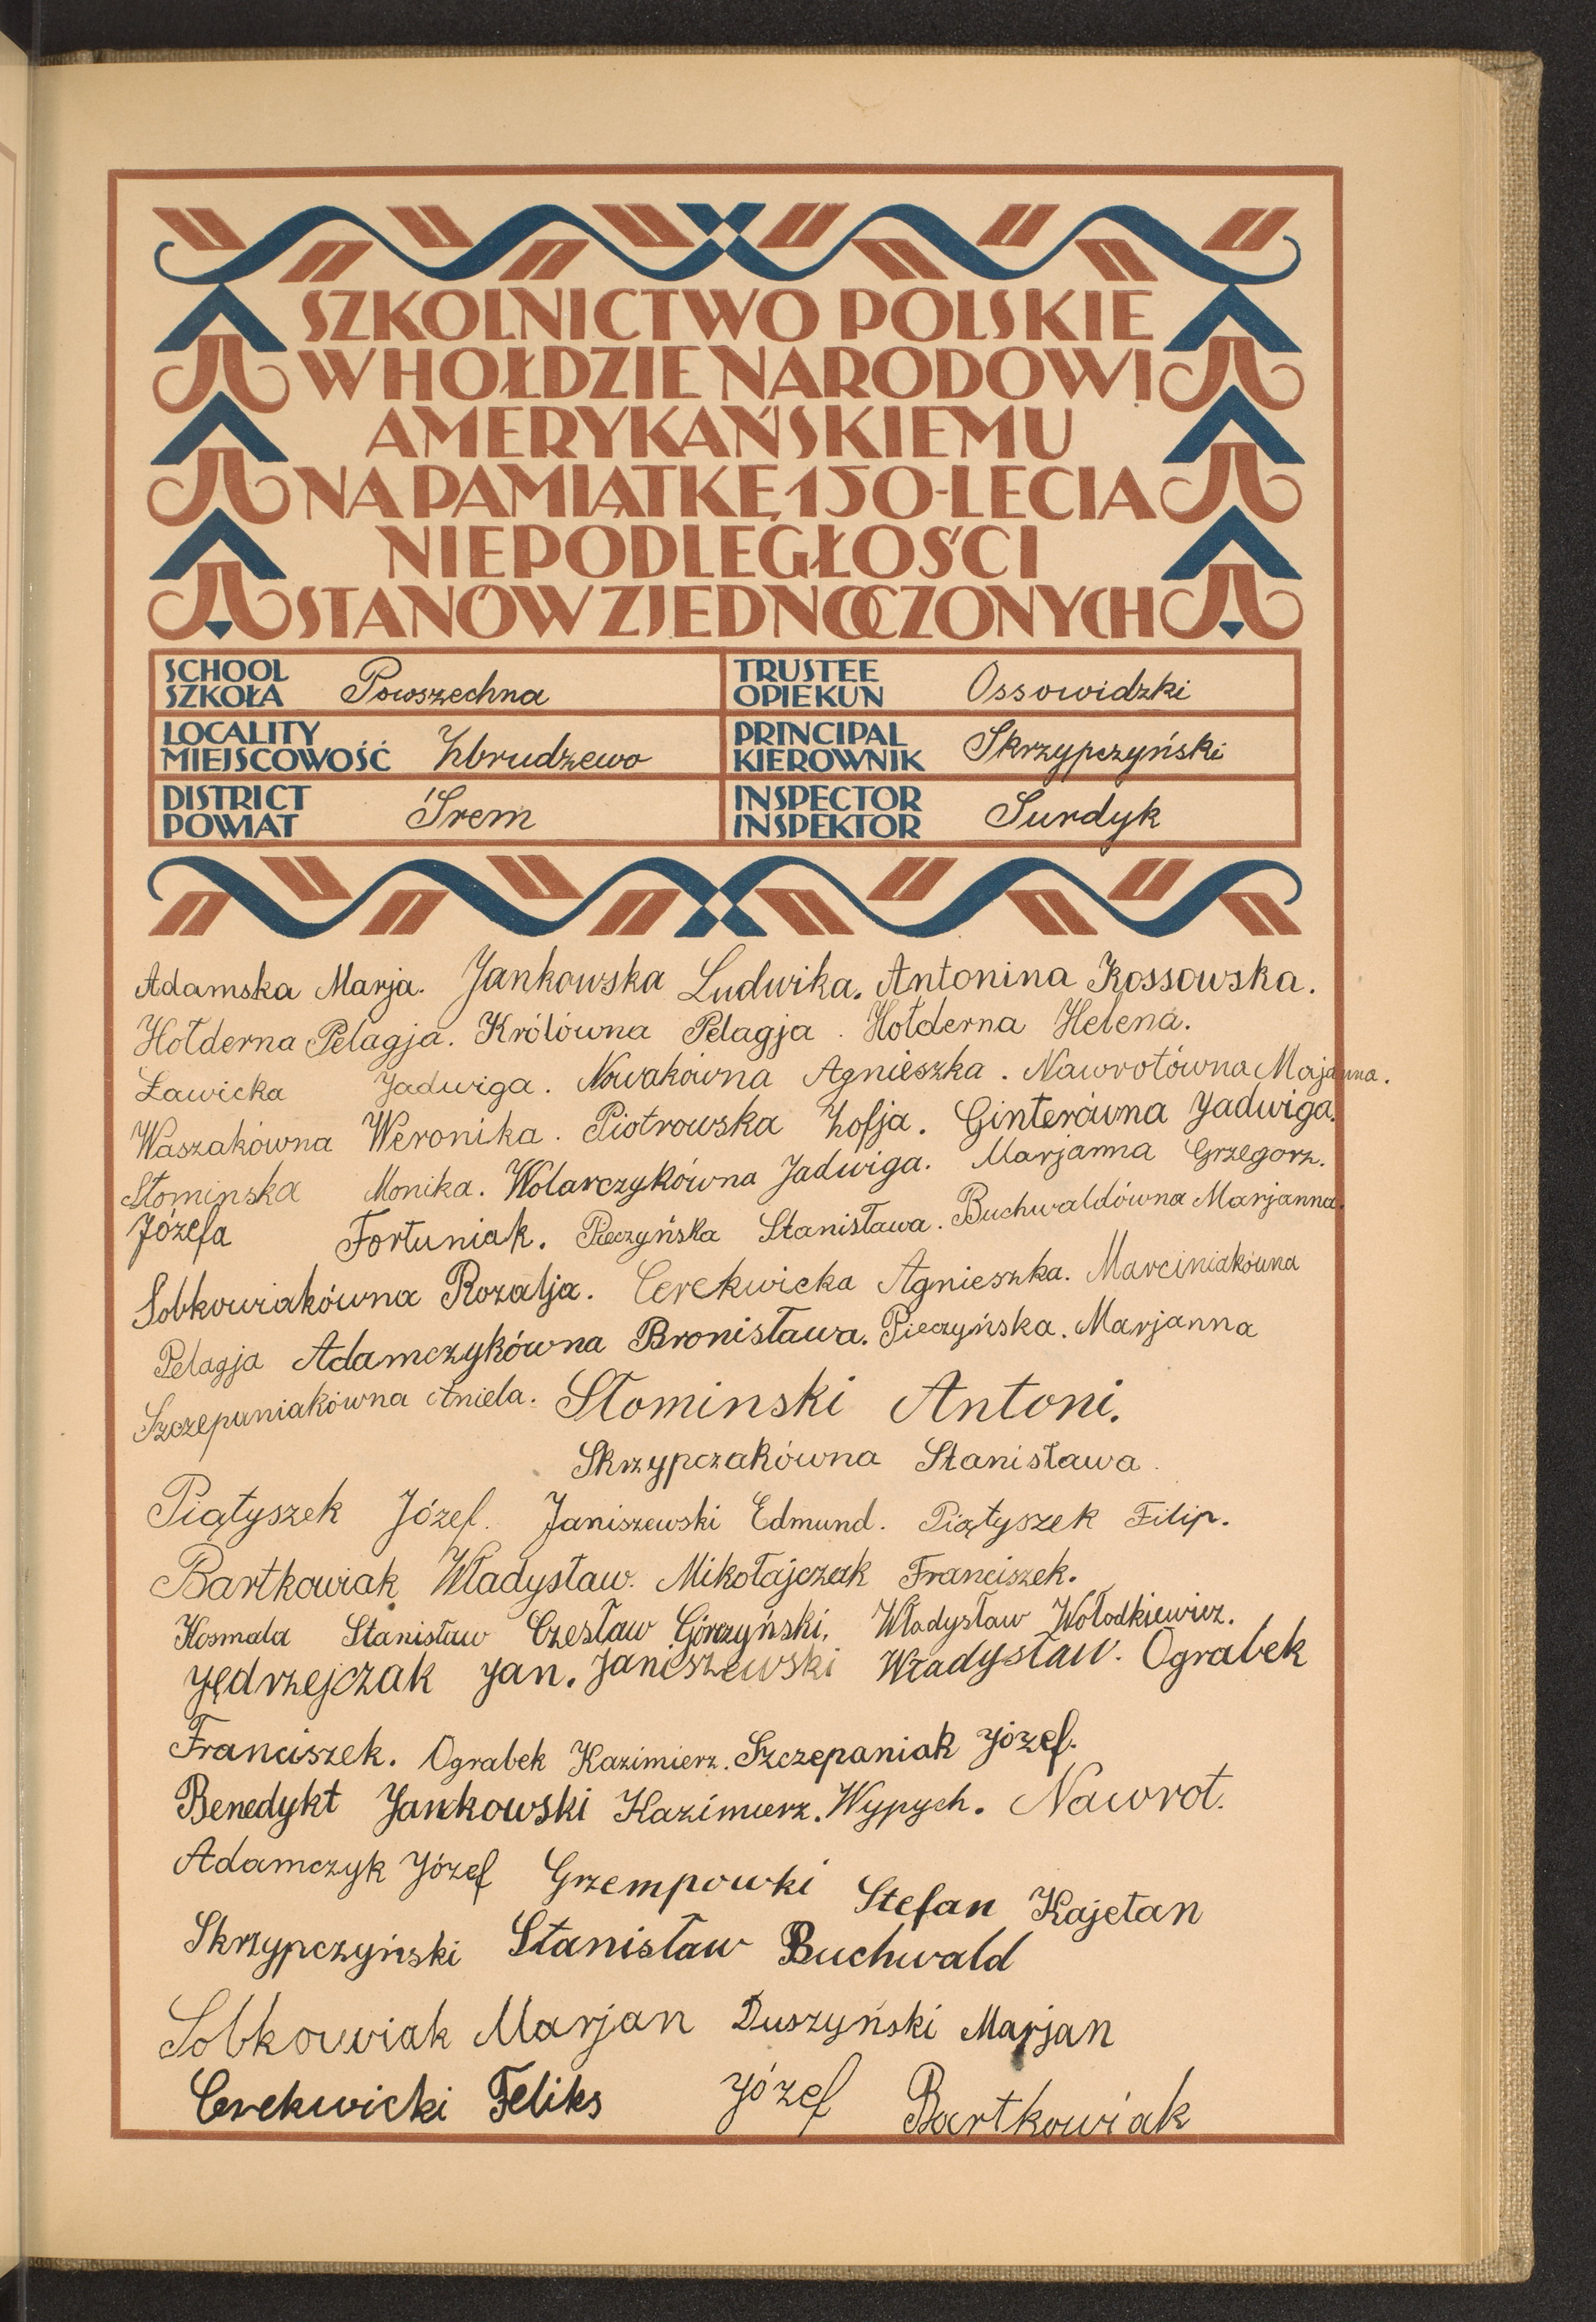 SZKOLNICTWO POLSKIE
W HOŁDZIE NARODOWI
AMERYKAŃSKIEMU
NA PAMIĄTKĘ 150-LECIA
NIEPODLEGŁOŚCI
STANÓW ZJEDNOCZONYCH
SCHOOL
SZKOŁA Powszechna
TRUSTEE
OPIEKUN Ossowidzki
LOCALITY
MIEJSCOWOŚĆ Zbrudzewo
PRINCIPAL
KIEROWNIK Skrzypczyński
DISTRICT
POWIAT Śrem
INSPECTOR
INSPEKTOR Surdyk
Adamska Marja. Jankowska Ludwika. Antonina Kossowska.
Hołderna Pelagja. Królówna Pelagja. Hołderna Helena.
Ławicka Jadwiga. Nowakówna Agnieszka. Nawrotówna Marjanna.
Waszakówna Weronika. Piotrowska Zofja. Ginterówna Jadwiga.
Słominska Monika. Wolarczykówna Jadwiga. Marjanna Grzegorz.
Józefa Fortuniak. Pieczyńska Stanisława. Buchwaldówna Marjanna.
Sobkowiakówna Rozalja. Cerekwicka Agnieszka. Marciniakówna
Pelagja Adamczykówna Bronisława. Pieczyńska. Marjanna
Szczepaniakówna Aniela. Słominski Antoni.
Skrzypczakówna Stanisława.
Piątyszek Józef. Janiszewski Edmund. Piątyszek Filip.
Bartkowiak Władysław. Mikołajczak Franciszek.
Kosmala Stanisław Czesław Górczyński. Władysław Wołodkiewicz.
Jędrzejczak Jan. Janiszewski Władysław. Ograbek
Franciszek. Ograbek Kazimierz. Szczepaniak Józef.
Benedykt Jankowski Kazimierz. Wypych. Nawrot.
Adamczyk Józef Grzempowki Stefan Kajetan
Skrzypczyński Stanisław Buchwald
Sobkowiak Marjan Duszyński Marjan
Cerekwicki Feliks Józef Bartkowiak